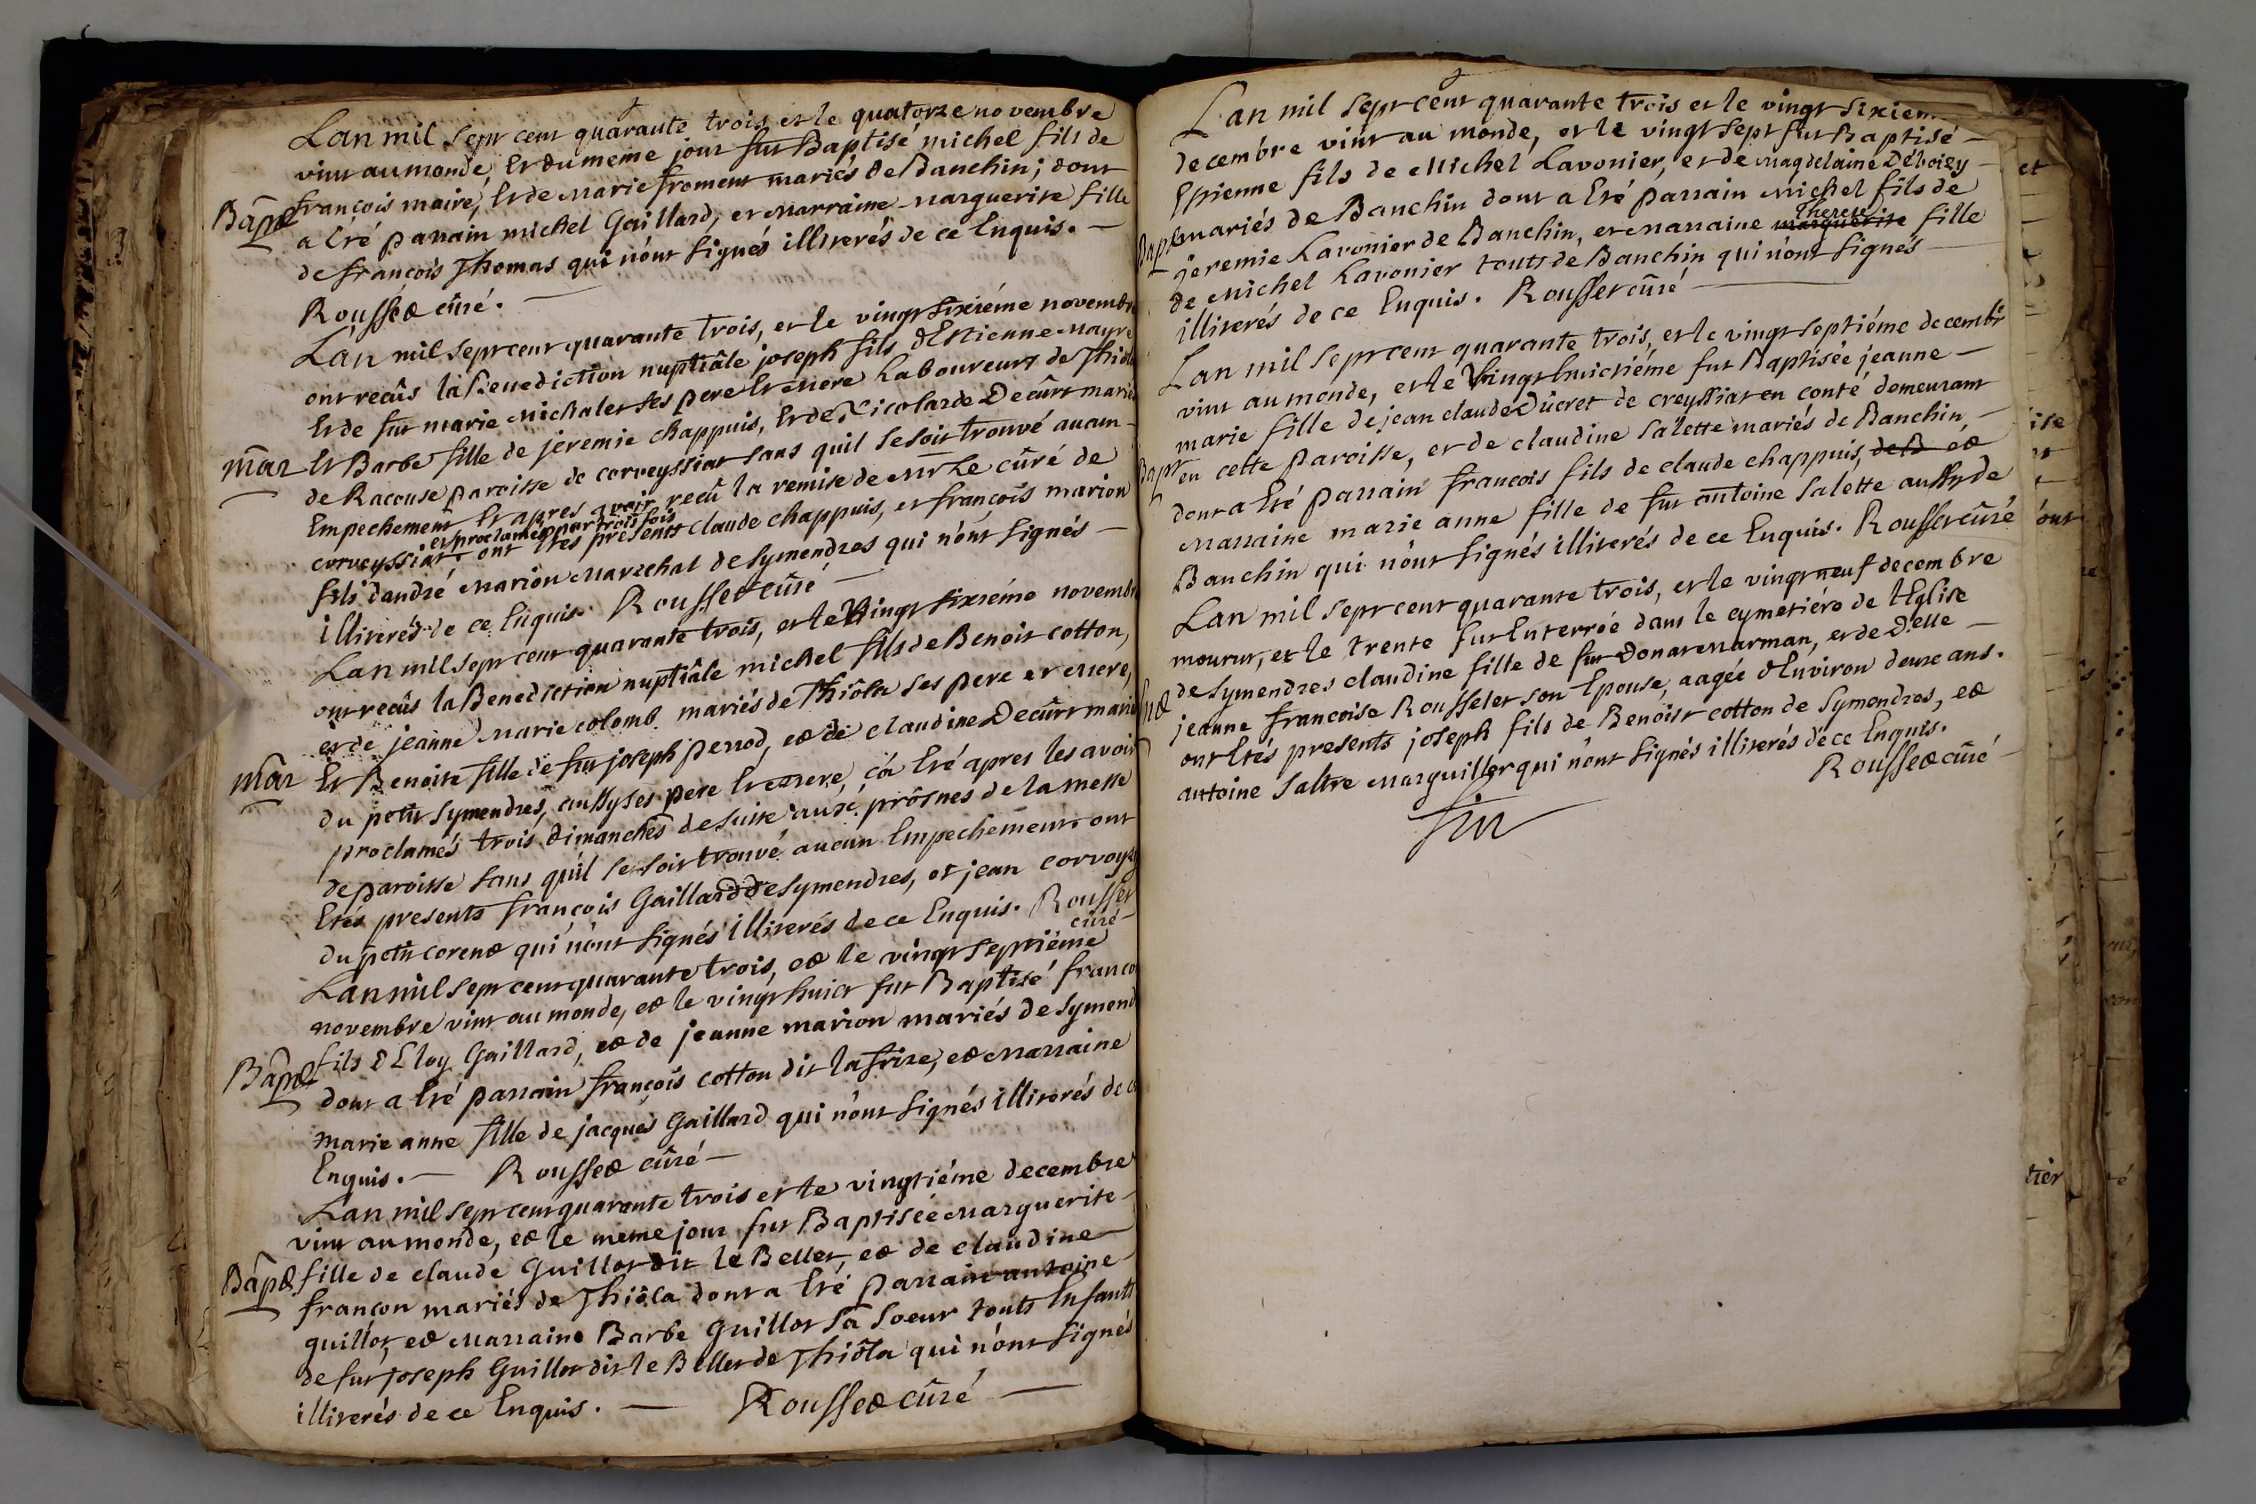 Lan mil sept cent quarante trois et le quatorze novembre
vint au monde, Et du meme jour fut Baptisé michel fils de
Bapt françois maire, Et de Marie froment mariés de Banchin; dont
a Eté parrain michel Gaillard, et Marraine Marguerite fille
de françois Thomas qui n'ont signés illiterés de ce Enquis. —
Rousset curé. —
Lan mil sept cent quarante trois, et le vingt sixiéme novembre
ont recûs la Benediction nuptiâle joseph fils d'Estienne Mayre
Et de fut marie Michalet ses pere Et Mere Laboureurs de Thiôla
mar Et Barbe fille de jeremie chappuis, Et de Nicolarde Decûrt mariés
de Racouse paroisse de corveyssiat sans quil se soit trouvé aucun
Empechement Et apres avoir recû la remise de Mr Le cûré de
et proclamés par trois fois
corveyssiat ont Etés présents claude chappuis, et françois marion
fils d'andré Marion Marechal de Symendres qui n'ont signés —
illiterés de ce Enquis. Rousset curé —
Lan mil sept cent quarante trois, et le Vingt sixiéme novembre
ont recûs la Benediction nuptiâle michel fils de Benoit cotton,
et de jeanne Marie colomb mariés de Thiôla ses pere et Mere,
mar Et Benoite fille de fut joseph perrod, et de claudine Decûrt mariés
du petit Symendres, aussy ses pere Et Mere, ca Eté apres les avoir
proclamés trois dimanches de suite aux prônes de la messe
de paroisse sans qu'il se soit trouvé aucun Empechement ont
Etés presents françois Gaillard de Symendres, et jean corvoyzy
du petit corent qui n'ont signés illiterés de ce Enquis. Rousset
curé —
Lan mil sept cent quarante trois, et le vingt septiéme
novembre vint au monde, et le vingt huict fut Baptisé franço
Bapt fils d'Eloy Gaillard, et de jeanne marion mariés de Symend
dont a Eté parrain françois cotton dit la frize, et Marraine
marie anne fille de jacques Gaillard qui n'ont signés illiterés de ce
Enquis. — Rousset cûré —
Lan mil sept cent quarante trois et le vingtiéme decembre
vint au monde, et le meme jour fut Baptisée Marguerite
Bapt fille de claude Guillot dit le Bellet, et de claudine
françon mariés de Thiôla dont a Eté parrain antoine
guillot, et Marraine Barbe Guillot sa soeur touts Enfants
de fut joseph Guillot dit le Bellet de Thiôla qui n'ont signés
illiterés de ce Enquis. — Rousset cûré —
Lan mil sept cent quarante trois et le vingt sixiem
decembre vint au monde, et le vingt sept fut Baptisé —
Etienne fils de Michel Lavonier, et de Magdelaine Déboizy
Bapt mariés de Banchin dont a Eté parrain Michel fils de
Therese
jeremie Lavonier de Banchin, et Marraine marguerite fille
de Michel Lavonier touts de Banchin qui n'ont signés
illiterés de ce Enquis. Rousset curé —
Lan mil sept cent quarante trois, et le vingt septiéme decembr
vint au monde, et le Vingt huictiéme fut Baptisée jeanne —
marie fille de jean claude Ducret de creyssiat en conté demeurant
Bapt en cette paroisse, et de claudine salette mariés de Banchin —
dont a Eté parrain francois fils de claude chappuis, de B et
Marraine marie anne fille de fut antoine salette aussy de
Banchin qui n'ont signés illiterés de ce Enquis. Rousset cûré
Lan mil sept cent quarante trois, et le vingt neuf decembre
mourut, et le trente fut Enterrée dans le cymetiére de l'Eglise
de Symendres claudine fille de fut Donat Marman, et de D.elle —
jeanne francoise Rousselet son Epouse, aagée d'Environ deux ans.
ont Etés presents joseph fils de Benoist cotton de Symendres, et
antoine saltre Marguiller qui n'ont signés illiterés de ce Enquis.
Rousset cûré
fin
et
ise
ont
tier